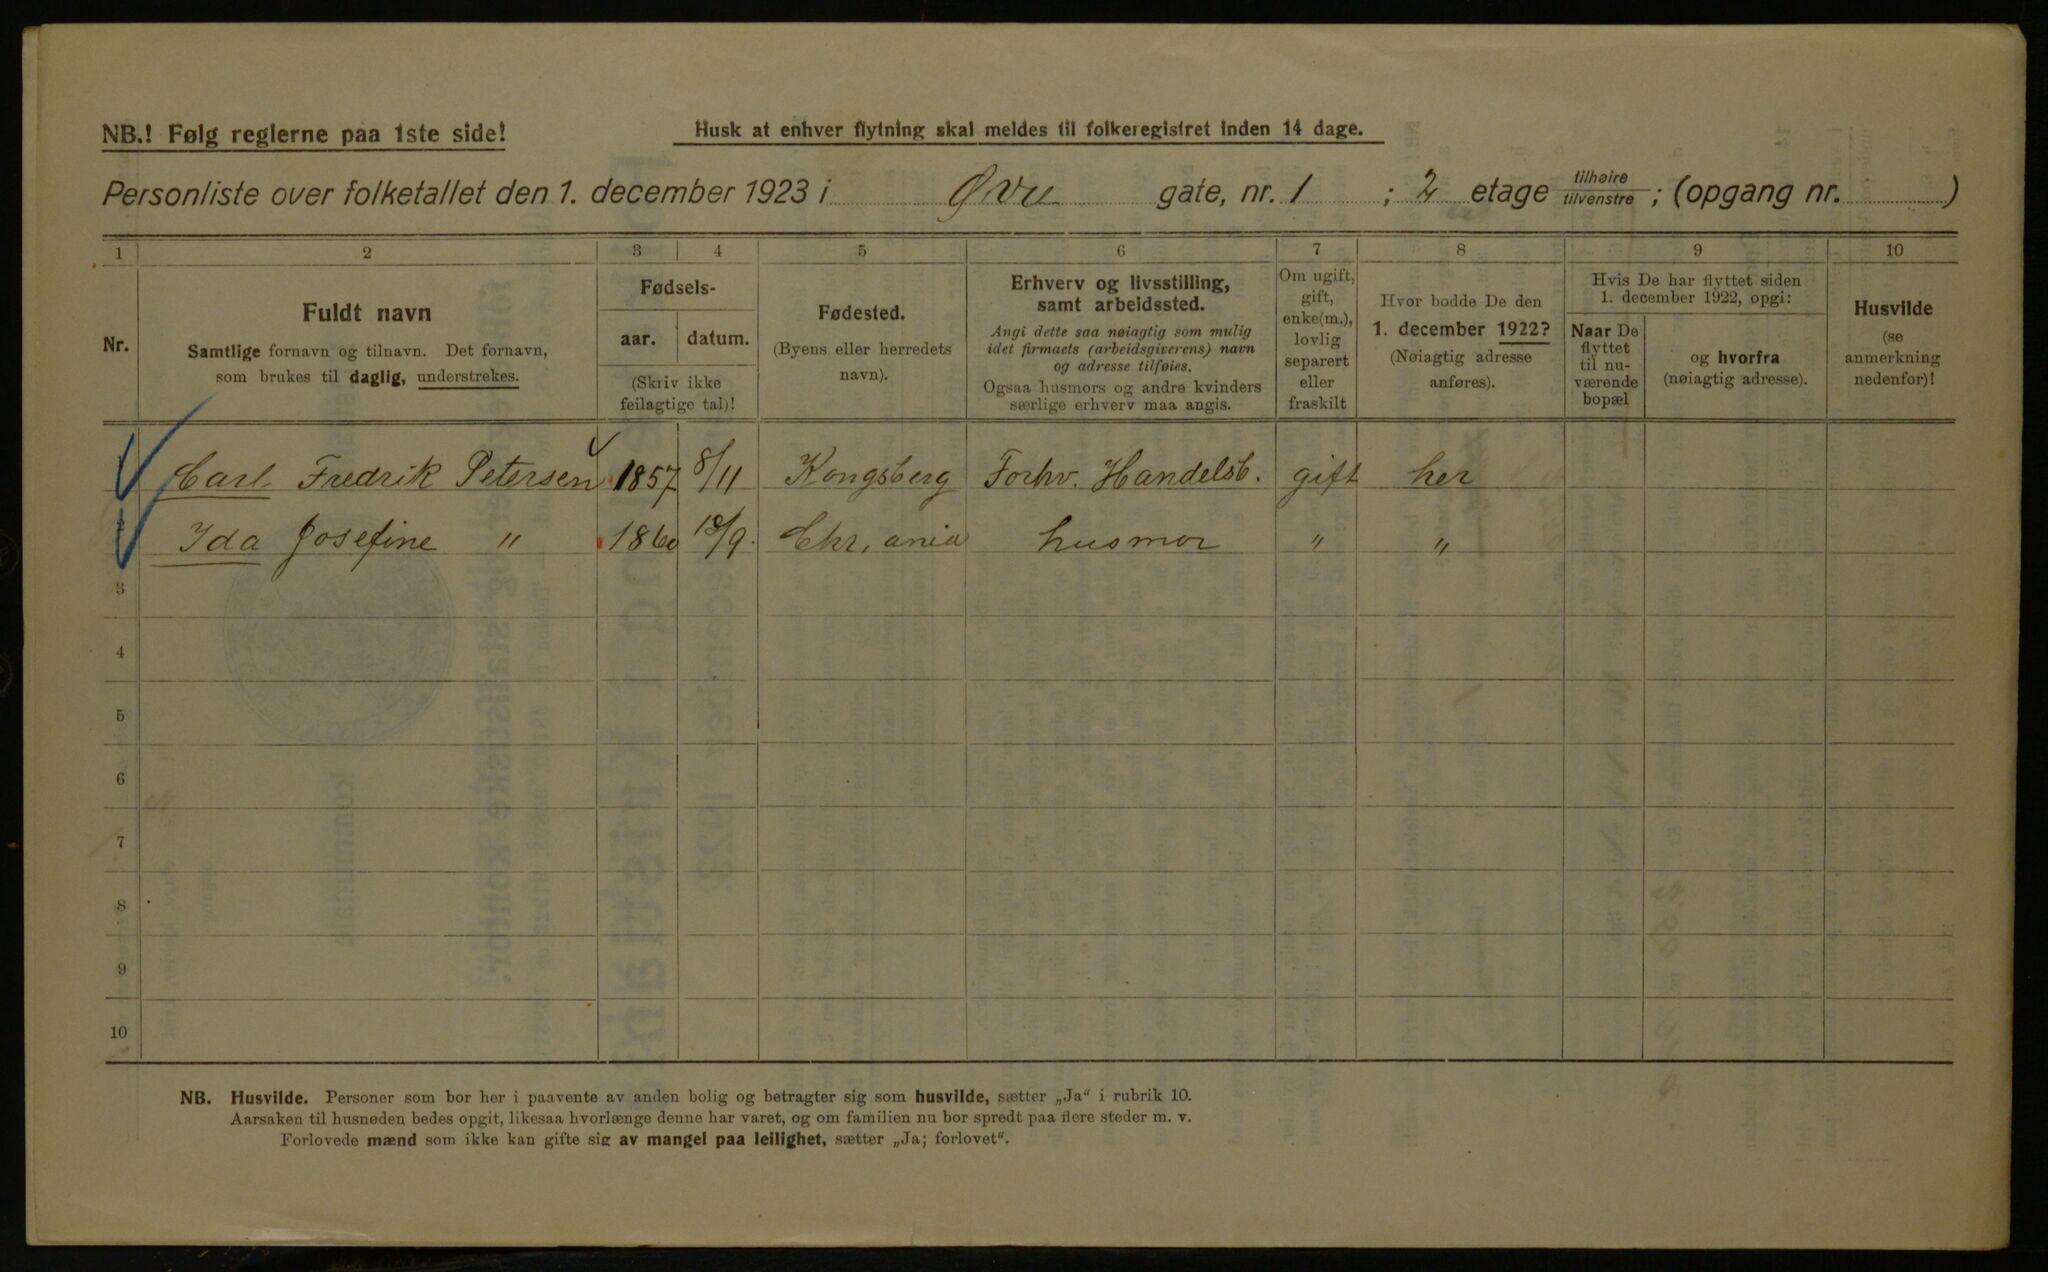 NB.! Følg reglerne paa 1ste side!
Husk at enhver flytning skal meldes til folkeregistret inden 14 dage.
Personliste over folketallet den 1. december 1923 i Øvre gate, nr. 1 ; 2 etage tilhøire tilvenstre ; (opgang nr. )
1 2 3 4 5 6 7 8 9 10
Nr.
Fuldt navn
Samtlige fornavn og tilnavn. Det fornavn,
som brukes til daglig, understrekes.
Fødsels-
aar. datum.
(Skriv ikke
feilagtige tal)!
Fødested.
(Byens eller herredets
navn).
Erhverv og livsstilling,
samt arbeidssted.
Angi dette saa nøiagtig som mulig
idet firmaets (arbeidsgiverens) navn
og adresse tilføies.
Ogsaa husmors og andre kvinders
særlige erhverv maa angis.
Om ugift,
gift,
enke(m.),
lovlig
separert
eller
fraskilt
Hvor bodde De den
1. december 1922?
(Nøiagtig adresse
anføres).
Hvis De har flyttet siden
1. december 1922, opgi:
Naar De
flyttet
til nu-
værende
bopæl
og hvorfra
(nøiagtig adresse).
Husvilde
(se
anmerkning
nedenfor)!
1 Carl Fredrik Petersen 1857 8/11 Kongsberg Forhv. Handelsb. gift her
2 Ida Josefine " 1860 /9. Chr.ania husmor " "
3
4
5
6
7
8
9
10
NB. Husvilde. Personer som bor her i paavente av anden bolig og betragter sig som husvilde, sætter „Ja“ i rubrik 10.
Aarsaken til husnøden bedes opgit, likesaa hvorlænge denne har varet, og om familien nu bor spredt paa flere steder m. v.
Forlovede mænd som ikke kan gifte sig av mangel paa leilighet, sætter „Ja; forlovet“.